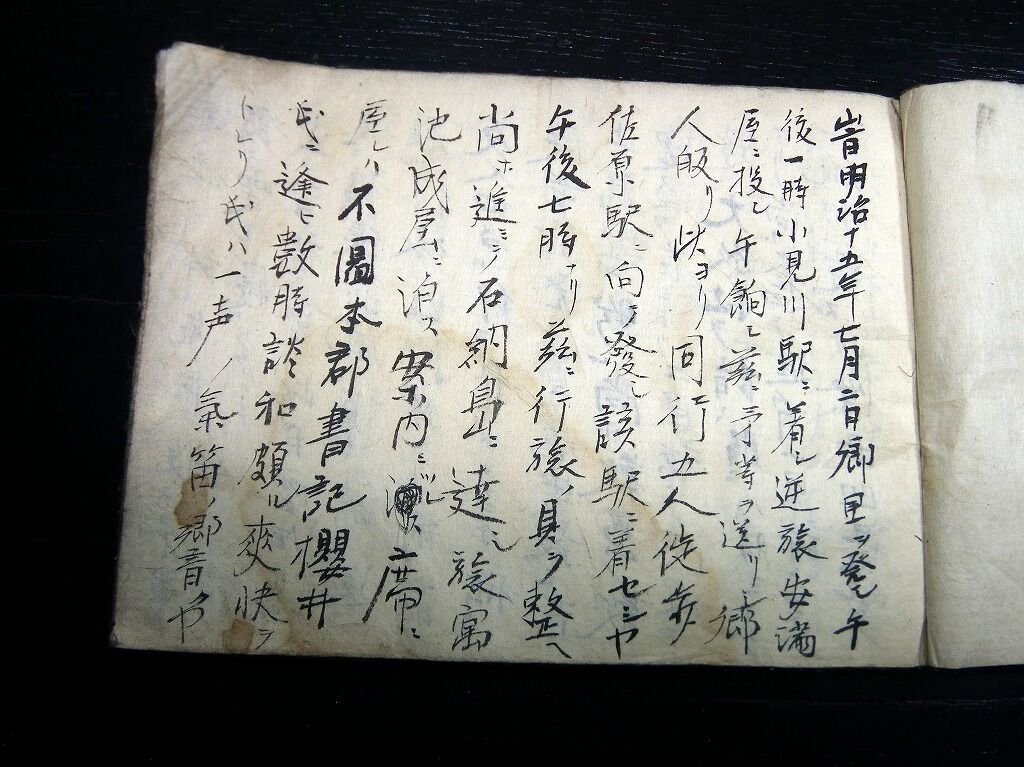 旹明治十五年七月二日郷里ヲ発シ午
後一時小見川駅ニ着シ逆旅安満
屋ニ投シ午餉シ茲ニ予等ヲ送リシ郷
人皈リ此ヨリ同行五人徒歩
佐原駅ニ向テ發シ該駅ニ着セシヤ
午後七時ナリ茲ニ行旅ノ具ヲ整ヘ
尚ホ進ミテ石納島ニ達シ旅寓
池成屋ニ泊ス案内ニ席ニ
居レハ不圖本郡書記櫻井
氏ニ逢ヒ數時談和頗ル爽快ヲ
トレリ氏ハ一声ノ氣笛ノ郷音ヤ